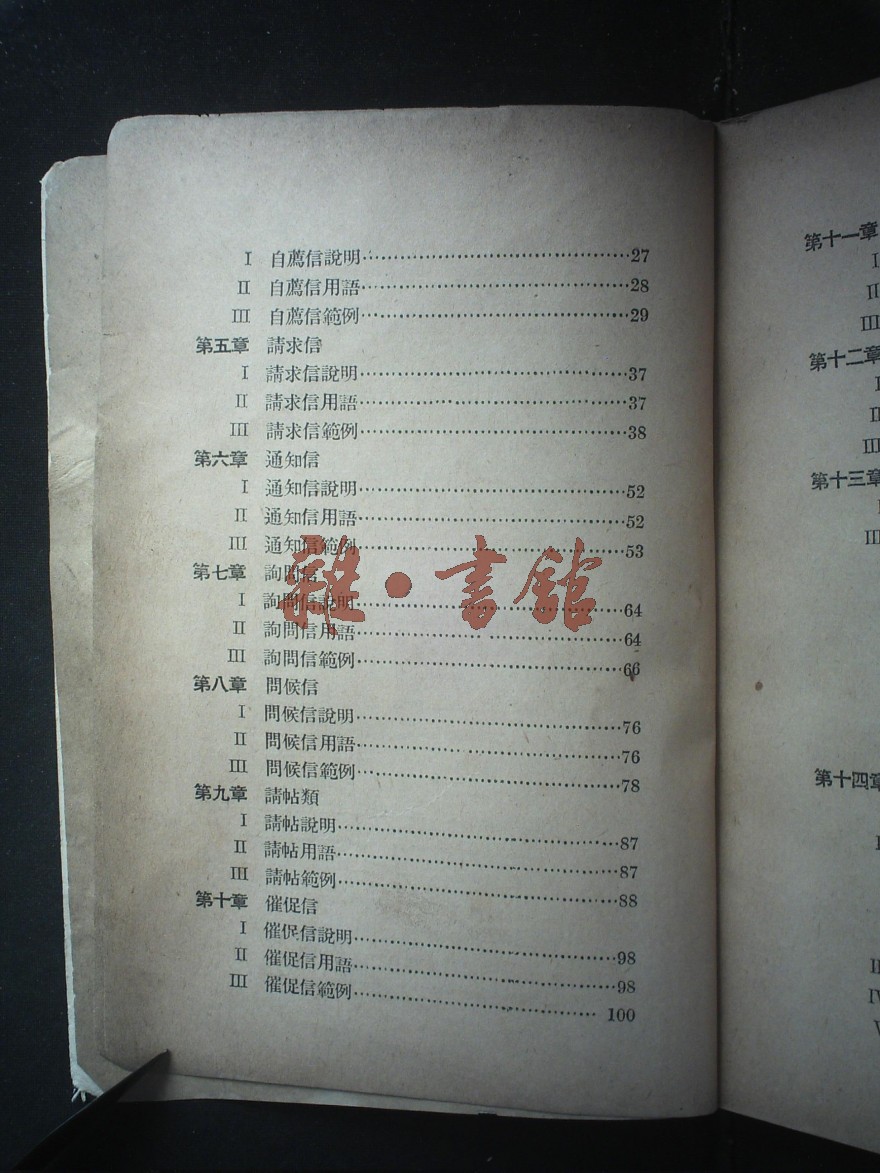 I 自薦信說明……27
II 自薦信用語……28
III 自薦信範例……29
第五章 請求信
I 請求信說明……37
II 請求信用語……37
III 請求信範例……38
第六章 通知信
I 通知信說明……52
II 通知信用語……52
III 通知信範例……53
第七章 詢問信
I 詢問信說明……64
II 詢問信用語……64
III 詢問信範例……66
第八章 問候信
I 問候信說明……76
II 問候信用語……76
III 問候信範例……78
第九章 請帖類
I 請帖說明……87
II 請帖用語……87
III 請帖範例……88
第十章 催促信
I 催促信說明……98
II 催促信用語……98
III 催促信範例……100
雜·書館
第十一章
I
II
III
第十二章
I
II
III
第十三章
I
II
第十四章
I
II
IV
V